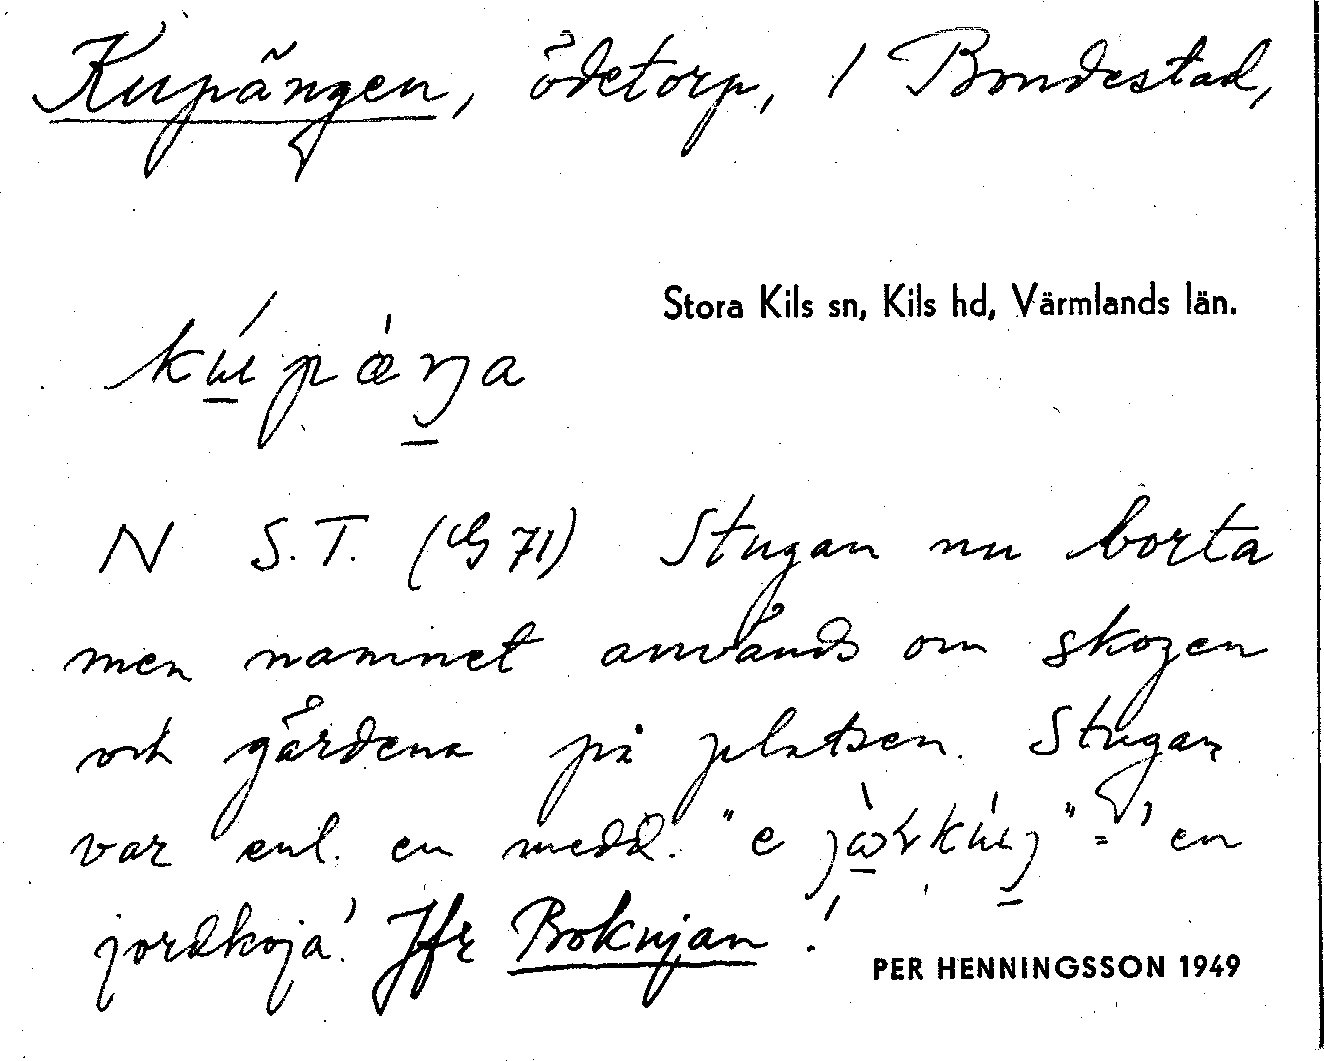 Kupängen, ödetorp, 1 Bondestad,
Stora Kils sn, Kils hd, Värmlands län.
N S.T. (G 71) Stugan nu borta
men namnet används om skogen
och gårdena på platsen. Stugan
var enl. en medd. "e " = 'en
jordkoja'. Jfr Bokujan !
PER HENNINGSSON 1949